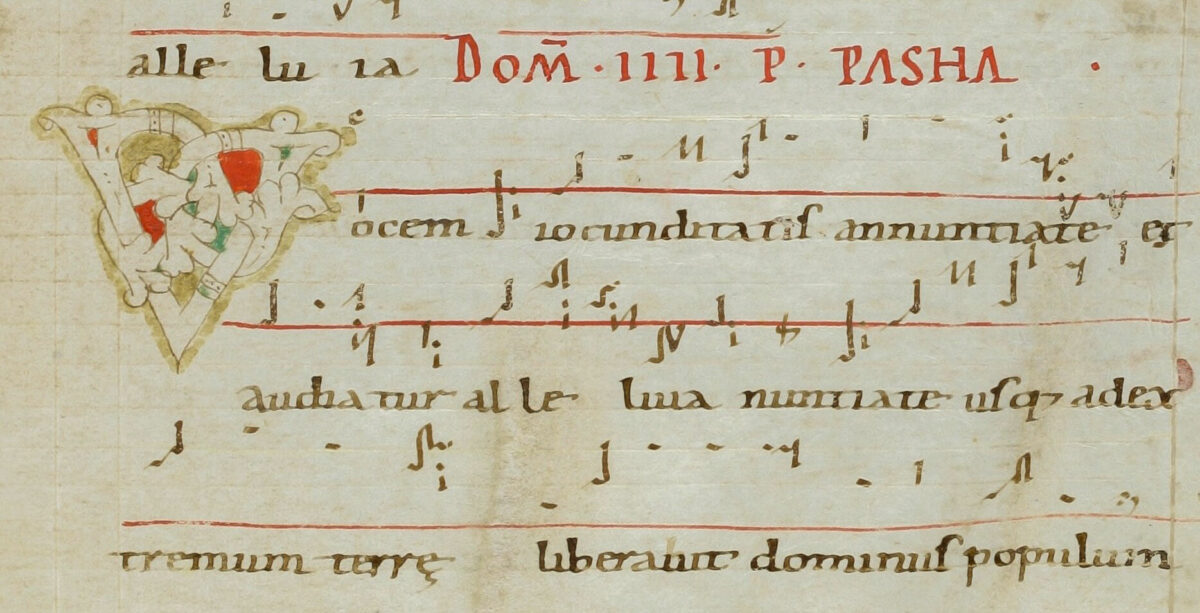 alle lu ia DOM̅ · IIII · P · PASHA ·
Vocem iocunditatis annuntiate et
audiatur alle luia nuntiate usq; adex
tremum terrę liberauit dominus populum